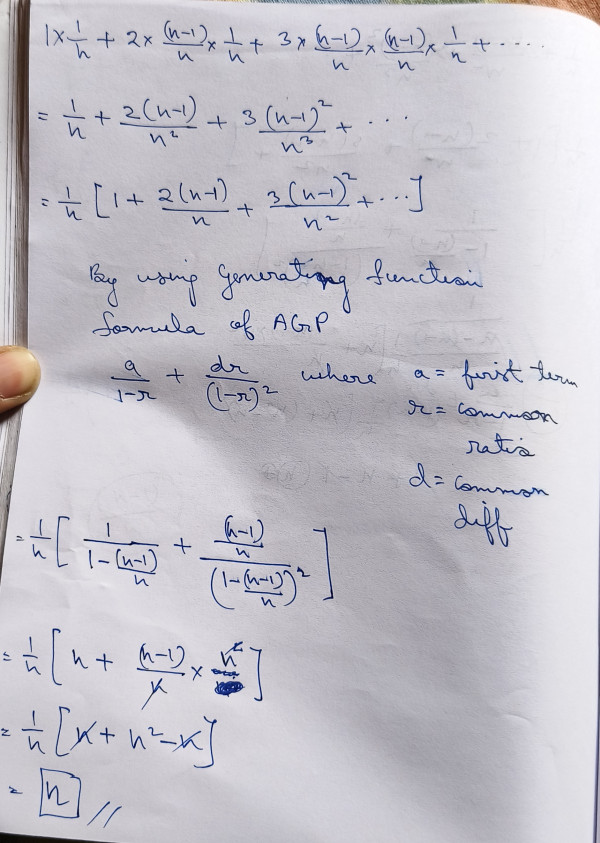 1 × 1/n + 2 × (n-1)/n × 1/n + 3 × (n-1)/n × (n-1)/n × 1/n + ....
= 1/n + 2(n-1)/n² + 3(n-1)²/n³ + ...
= 1/n [1 + 2(n-1)/n + 3(n-1)²/n² + ...]
By using generating function
formula of AGP
a/(1-r) + dr/(1-r)² where a = first term
r = common
ratio
d = common
diff
= 1/n [1/(1-(n-1)/n) + ((n-1)/n)/(1-(n-1)/n)²]
= 1/n [n + (n-1)/n × n²]
= 1/n [n + n² - n]
= n //